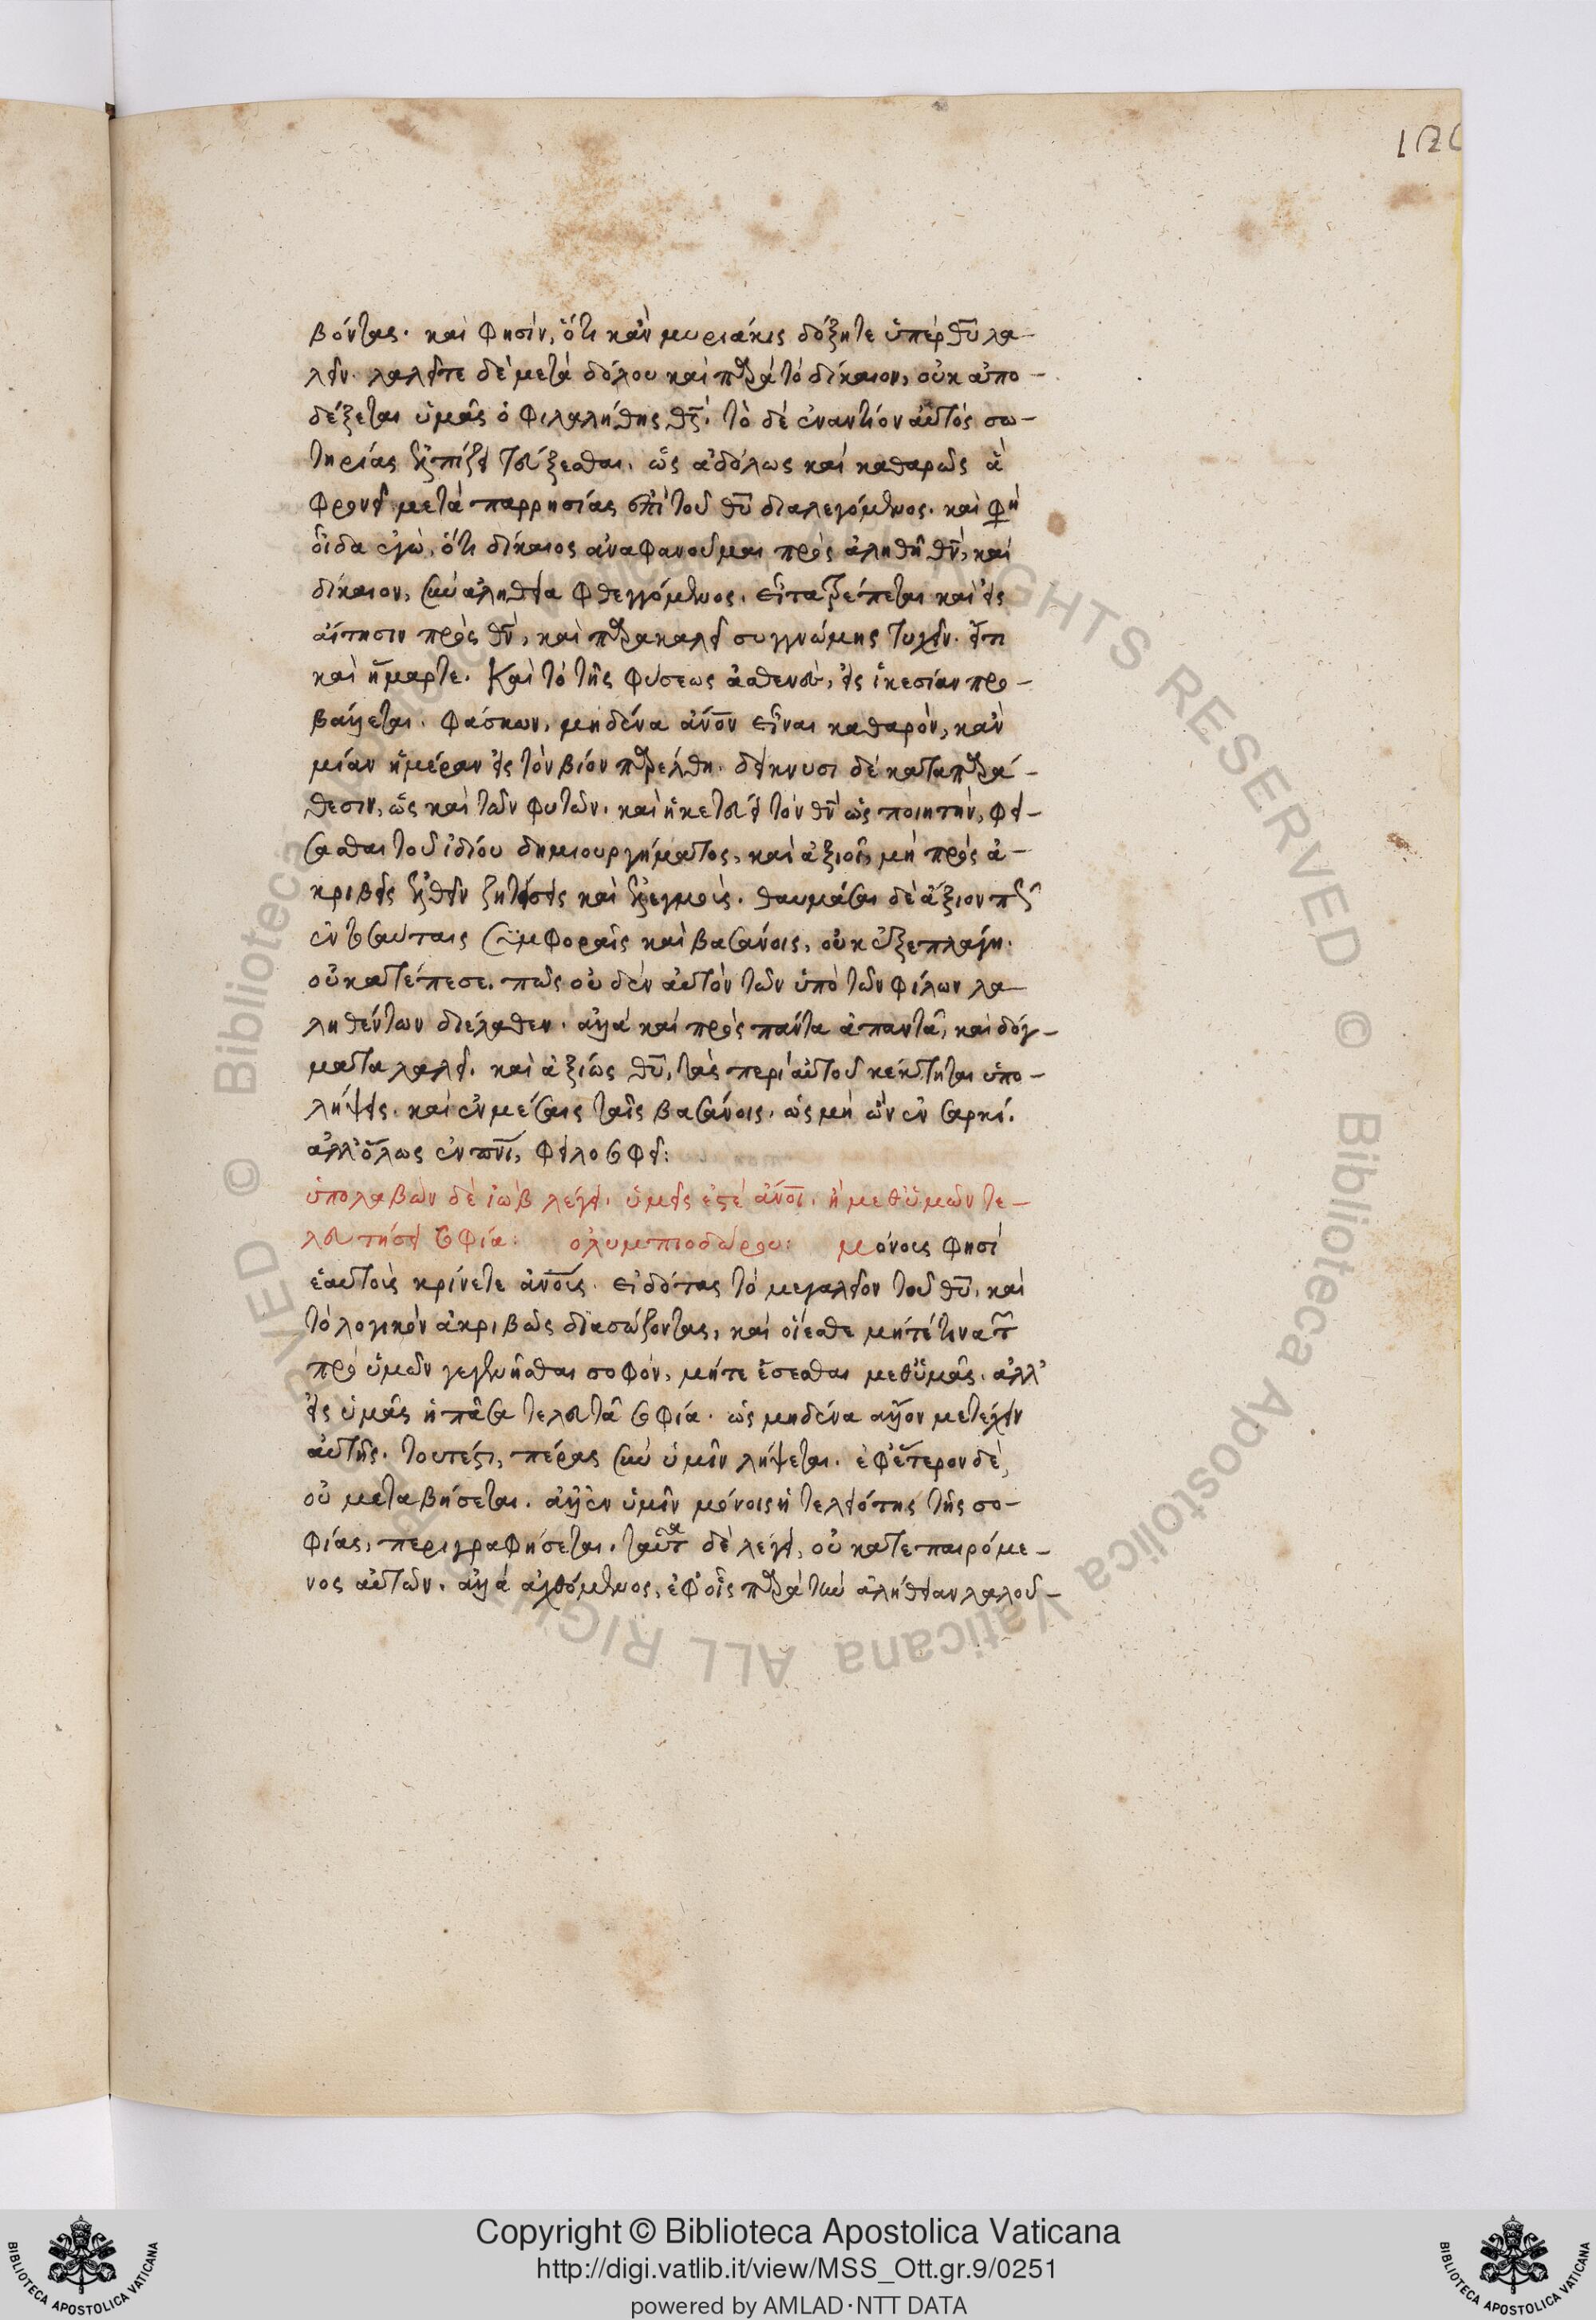 βόντας. καὶ φησὶν, ὅτι κἂν μυριάκις δόξητε ὑπὲρ θῦ λα-
λεῖν. λαλεῖτε δὲ μετὰ δόλου καὶ παρὰ τὸ δίκαιον, οὐκ ἀπο-
δέξεται ὑμᾶς ὁ φιλαλήθης θς. τὸ δὲ ἐναντίον αὐτὸς σω-
τηρίας ἐλπίζει τεύξεσθαι. ὡς ἀδόλως καὶ καθαρῶς ἃ
φρονεῖ μετὰ παρρησίας ἐπὶ τοῦ θῦ διαλεγόμενος. καὶ φη
οἶδα ἐγὼ, ὅτι δίκαιος ἀναφανοῦμαι πρὸς ἀληθῆ θν, καὶ
δίκαιον, καὶ ἀλήθεια φθεγγόμενος. εἶτα τρέπεται καὶ εἰς
αἴτησιν πρὸς θν, καὶ παρακαλεῖ συγγνώμης τυχεῖν. εἴτι
καὶ ἥμαρτε. καὶ τὸ τῆς φύσεως ἀσθενὲς, εἰς ἱκεσίαν προ-
βάλλεται. φάσκων, μηδένα ἀνον εἶναι καθαρὸν, κἂν
μίαν ἡμέραν εἰς τὸν βίον παρέλθη. δείκνυσι δὲ κατὰ παρά-
θεσιν, ὡς καὶ τῶν φυτῶν. καὶ ἱκετεύει τὸν θν ὡς ποιητὴν, φεί-
σασθαι τοῦ ἰδίου δημιουργήματος, καὶ ἀξιοῖ, μὴ πρὸς ἀ-
κριβεῖς ἐλθεῖν ζητήσεις καὶ ἐλεγμοὺς. θαυμάσαι δὲ ἄξιον πῶς
ἐν τοσαύταις συμφοραῖς καὶ βασάνοις, οὐκ ἐξεπλάγη.
οὐ κατέπεσε. πῶς οὐδὲν αὐτὸν τῶν ὑπὸ τῶν φίλων λα-
ληθέντων διέλαθεν. ἀλλὰ καὶ πρὸς πάντα ἀπαντᾶ, καὶ δόγ-
ματα λαλεῖ. καὶ ἀξίως θῦ, τὰς περὶ αὐτοῦ κέκτηται ὑπο-
λήψεις. καὶ ἐν μέσαις ταῖς βασάνοις. ὡς μὴ ὢν ἐν σαρκί.
ἀλλ' ὅλως ἐν πνι, φιλοσοφεῖ:
ὑπολαβὼν δὲ ἰὼβ λέγει. ὑμεῖς ἐστὲ ἄνοι. ἢ μεθ' ὑμῶν τε-
λευτήσει σοφία: ολυμπιοδώρου: μόνους φησὶ
ἑαυτοὺς κρίνετε ἀνους. εἰδότας τὸ μεγαλεῖον τοῦ θῦ, καὶ
τὸ λογικὸν ἀκριβῶς διασώζοντας, καὶ οἴεσθε μήτέ τινα
πρὸ ὑμῶν γεγενῆσθαι σοφὸν, μήτε ἔσεσθαι μεθ' ὑμᾶς. ἀλλ'
εἰς ὑμᾶς ἡ πᾶσα τελευτᾶ σοφία. ὡς μηδένα ἄλλον μετέχειν
αὐτῆς. τουτέστι, πέρας σὺν ὑμῖν λήψεται. ἐφ' ἕτερον δὲ,
οὐ μεταβήσεται. ἀλλ' ἐν ὑμῖν μόνοις ἡ τελειότης τῆς σο-
φίας, περιγραφήσεται. ταῦτα δὲ λέγει, οὐ κατεπαιρόμε-
νος αὐτῶν. ἀλλὰ ἀχθόμενος, ἐφ' οἷς παρὰ τὴν ἀλήθειαν λαλοῦ-
Copyright © Biblioteca Apostolica Vaticana
http://digi.vatlib.it/view/MSS_Ott.gr.9/0251
powered by AMLAD·NTT DATA